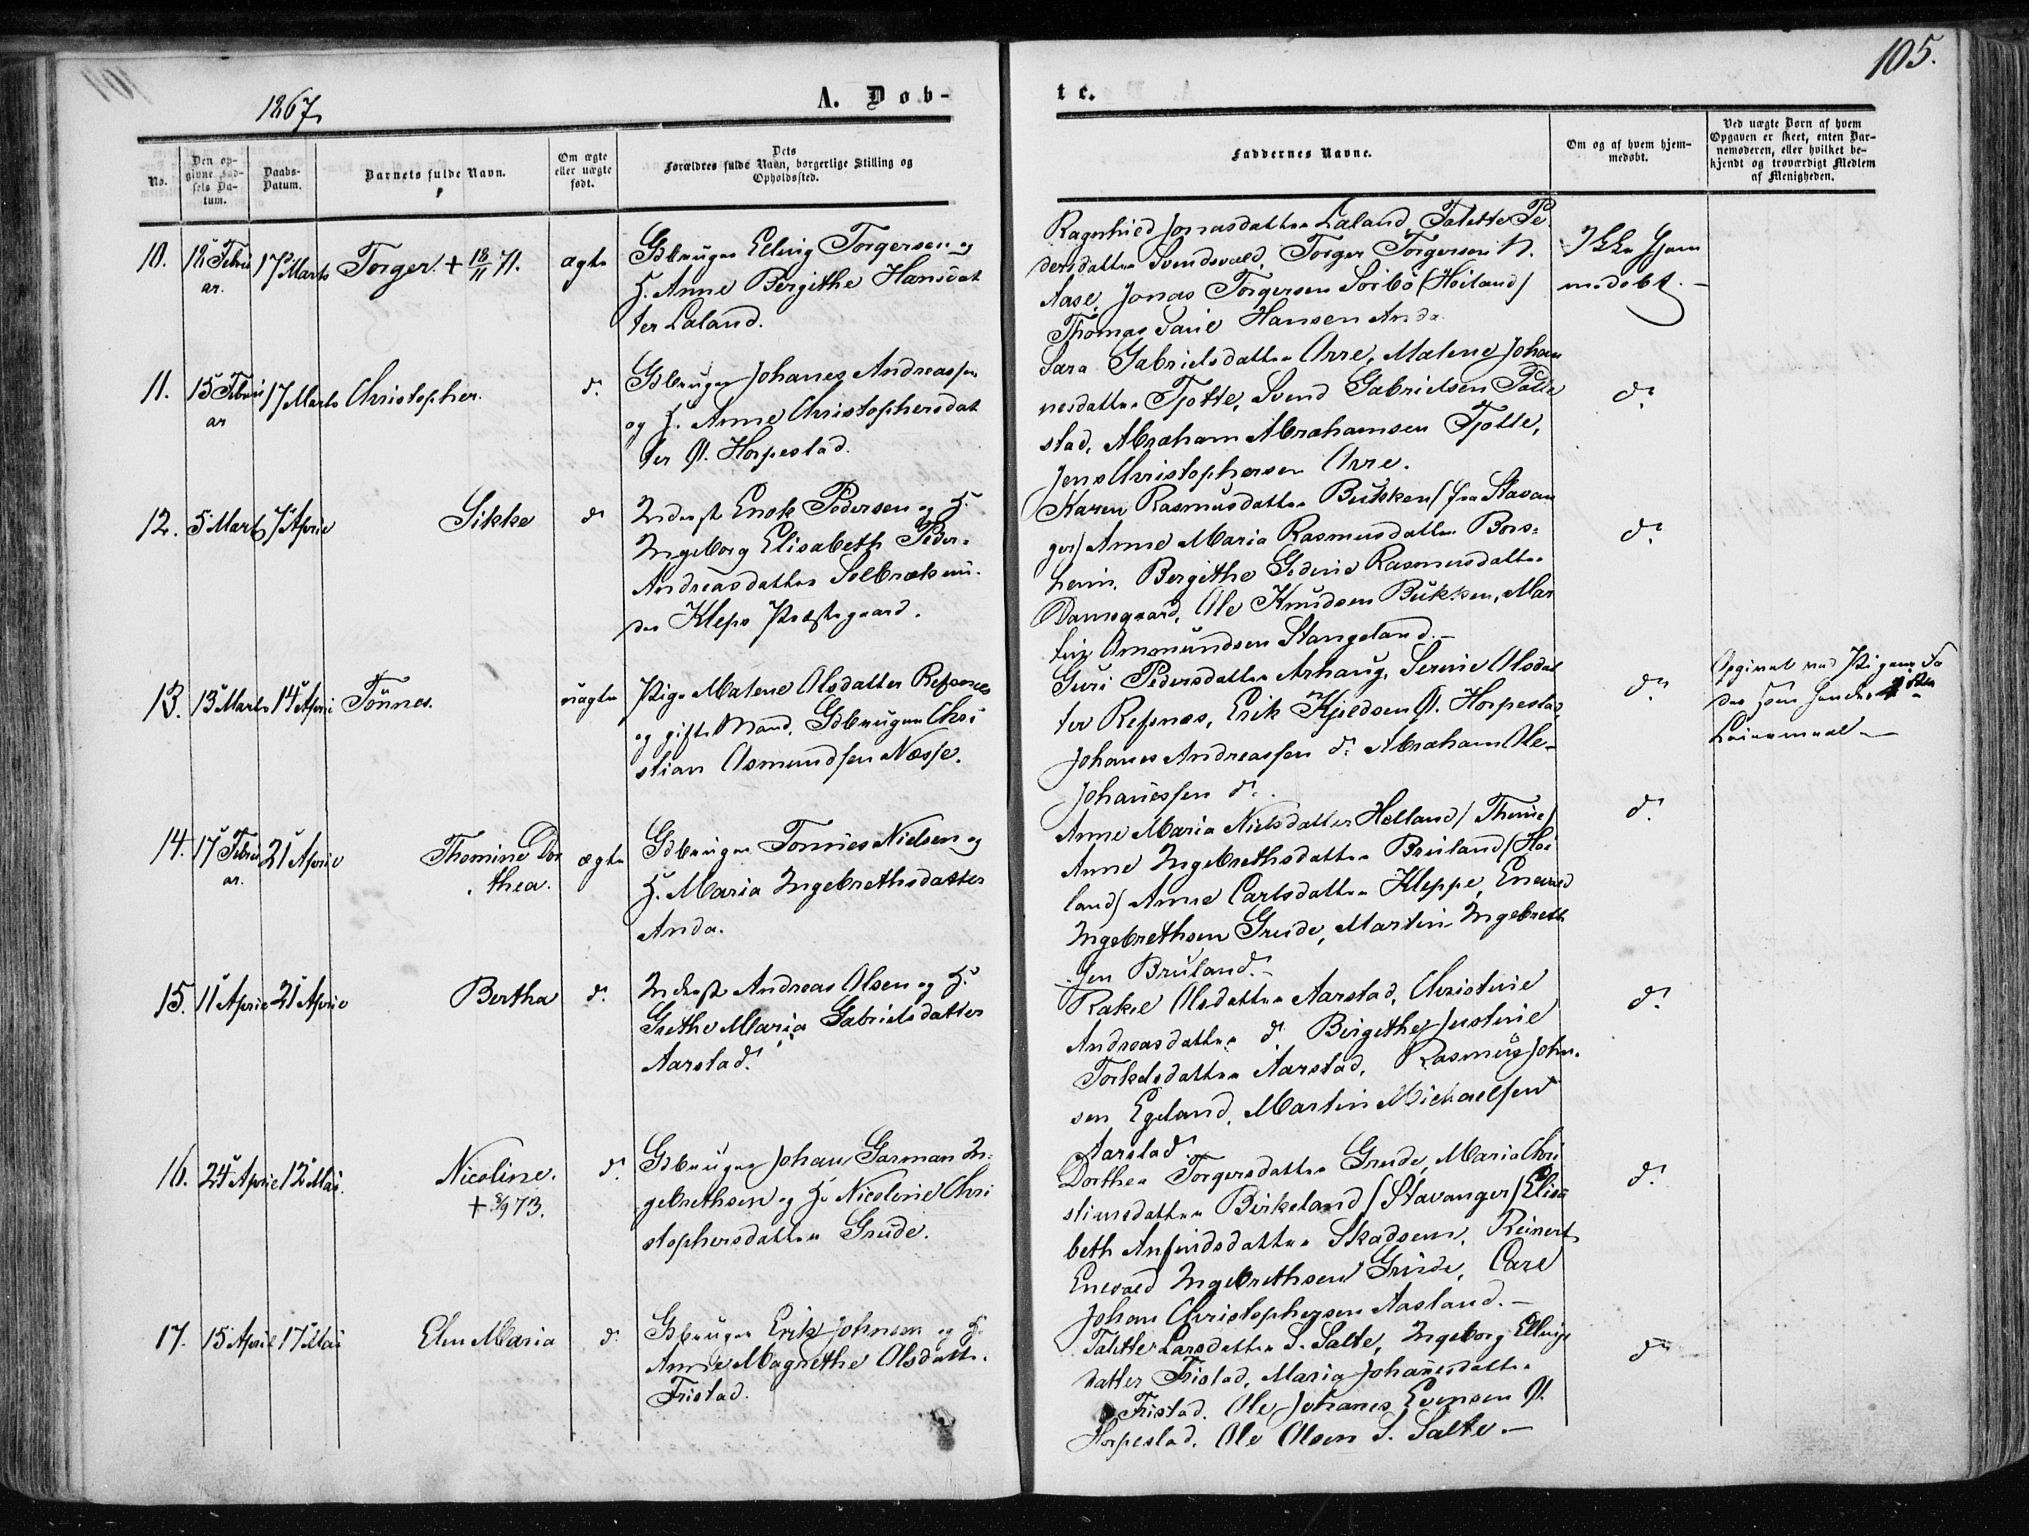 105.
1867,
A. Døb-
te.
No.
Den op-
givne Fød-
sels Da-
tum.
Daabs-
Datum.
Barnets fulde Navn.
Om ægte
eller uægte
født.
Dets
Forældres fulde Navn, borgerlige Stilling og
Opholdssted.
Faddernes Navne.
Om og af hvem hjem-
medøbt.
Ved uægte Børn af hvem
Opgaven er skeet, enten Bar-
nemoderen, eller hvilket be-
kjendt og troværdigt Medlem
af Menigheden.
10.
12 Febru
ar.
17 Marts
Torger. + 18/11 71.
ægte
Gbruger Elling Torgersen og
H. Anne Bergithe Hansdat
ter Laland.
Ragnhild Jonasdatter Laland, Talette Pe
dersdatter Svendsvold, Torger Torgersen N.
Aase, Jonas Torgersen Sörbö (Höiland)
Thomas Hansen Anda.
Ikke hjem
medøbt.
11.
15 Febru
ar
17 Marts
Christopher.
d.
Gbruger Johanes Andreassen
og H. Anne Christophersdat
ter N. Horpestad.
Sara Gabrielsdatter Orre, Malene Johan
nesdatter Tjötte, Svend Gabrielsen
stad, Abraham Abrahamsen Tjötte,
Jens Christophersen Orre.
d.
12.
5 Marts
7 April
Sikke
d.
Inderst Enok Pedersen og H.
Ingeborg Elisabeth Peder-
Andreasdatter Selbræk un-
der Klepp Præstegaard.
Karen Rasmusdatter Bükken (fra Stavan
ger) Anne Maria Rasmusdatter Bors-
heim, Bergithe Rasmusdatter
Dannsgaard, Ole Knudsen Bükken, Mar
tin Ommundsen Stangeland.-
d.
13.
13 Marts
14 April
Tönnes.
uægte
Pige Malene Olsdatter Refsnes
og gift Mand, Gbruger Chri
stian Osmundsen Næsse.
Guri Pedersdatter Arhaug, Serine Olsdat
ter Refsnes, Erik Kjeldsen N. Horpestad,
Johanes Andreassen d. Abraham Ole-
Johanessen d.
d.
Opgivet ved Pigens Fa
der som hendes
Leiermaal -
14.
17 Febru
ar.
21 April
Thomine Dor
thea.
ægte
Gbruger Tönnes Nielsen og
H. Maria Ingebrethsdatter
Anda.
Anne Maria Nielsdatter Helland (Thime)
Anne Ingebrethsdatter Bruland (Höi
land) Anne Carlsdatter Kleppe, Enevald
Ingebrethsen Grude, Martin Ingebreth
sen Bruland.-
d.
15.
11 April
21 April
Bertha
d.
Inderst Andreas Olsen og H.
Grethe Maria Gabrielsdatter
Aarstad.
Rakel Olsdatter Aarstad, Christine
Andreasdatter d. Birgithe Justine
Torkelsdatter Aarstad, Rasmus John-
sen Egeland, Martin Michaelsen
Aarstad.
d.
16.
24 April
12 Mai.
Nicoline.
+ 8/9 73.
d.
Gbruger Johan Garman In-
gebrethsen og H. Nicoline Chri
stophersdatter Grude.
Dorthea Torgersdatter Grude, Maria Chri
stiansdatter Birkeland (Stavanger) Elisa
beth Anfindsdatter Skadsem, Reinert
Enevald Ingebrethsen Grude, Carl
Johan Christophersen Aasland.-
d.
17.
15 April
17 Mai
Elen Maria
d.
Gbruger Erik Johnsen og H.
Anne Magrethe Olsdatt.
Fristad.
Talette Larsdatter S. Salte, Ingeborg Ellings
datter Fristad, Maria Johanesdatter
Fristad. Ole Johanes Evensen N.
Horpestad. Ole Olsen S. Salte.-
d.